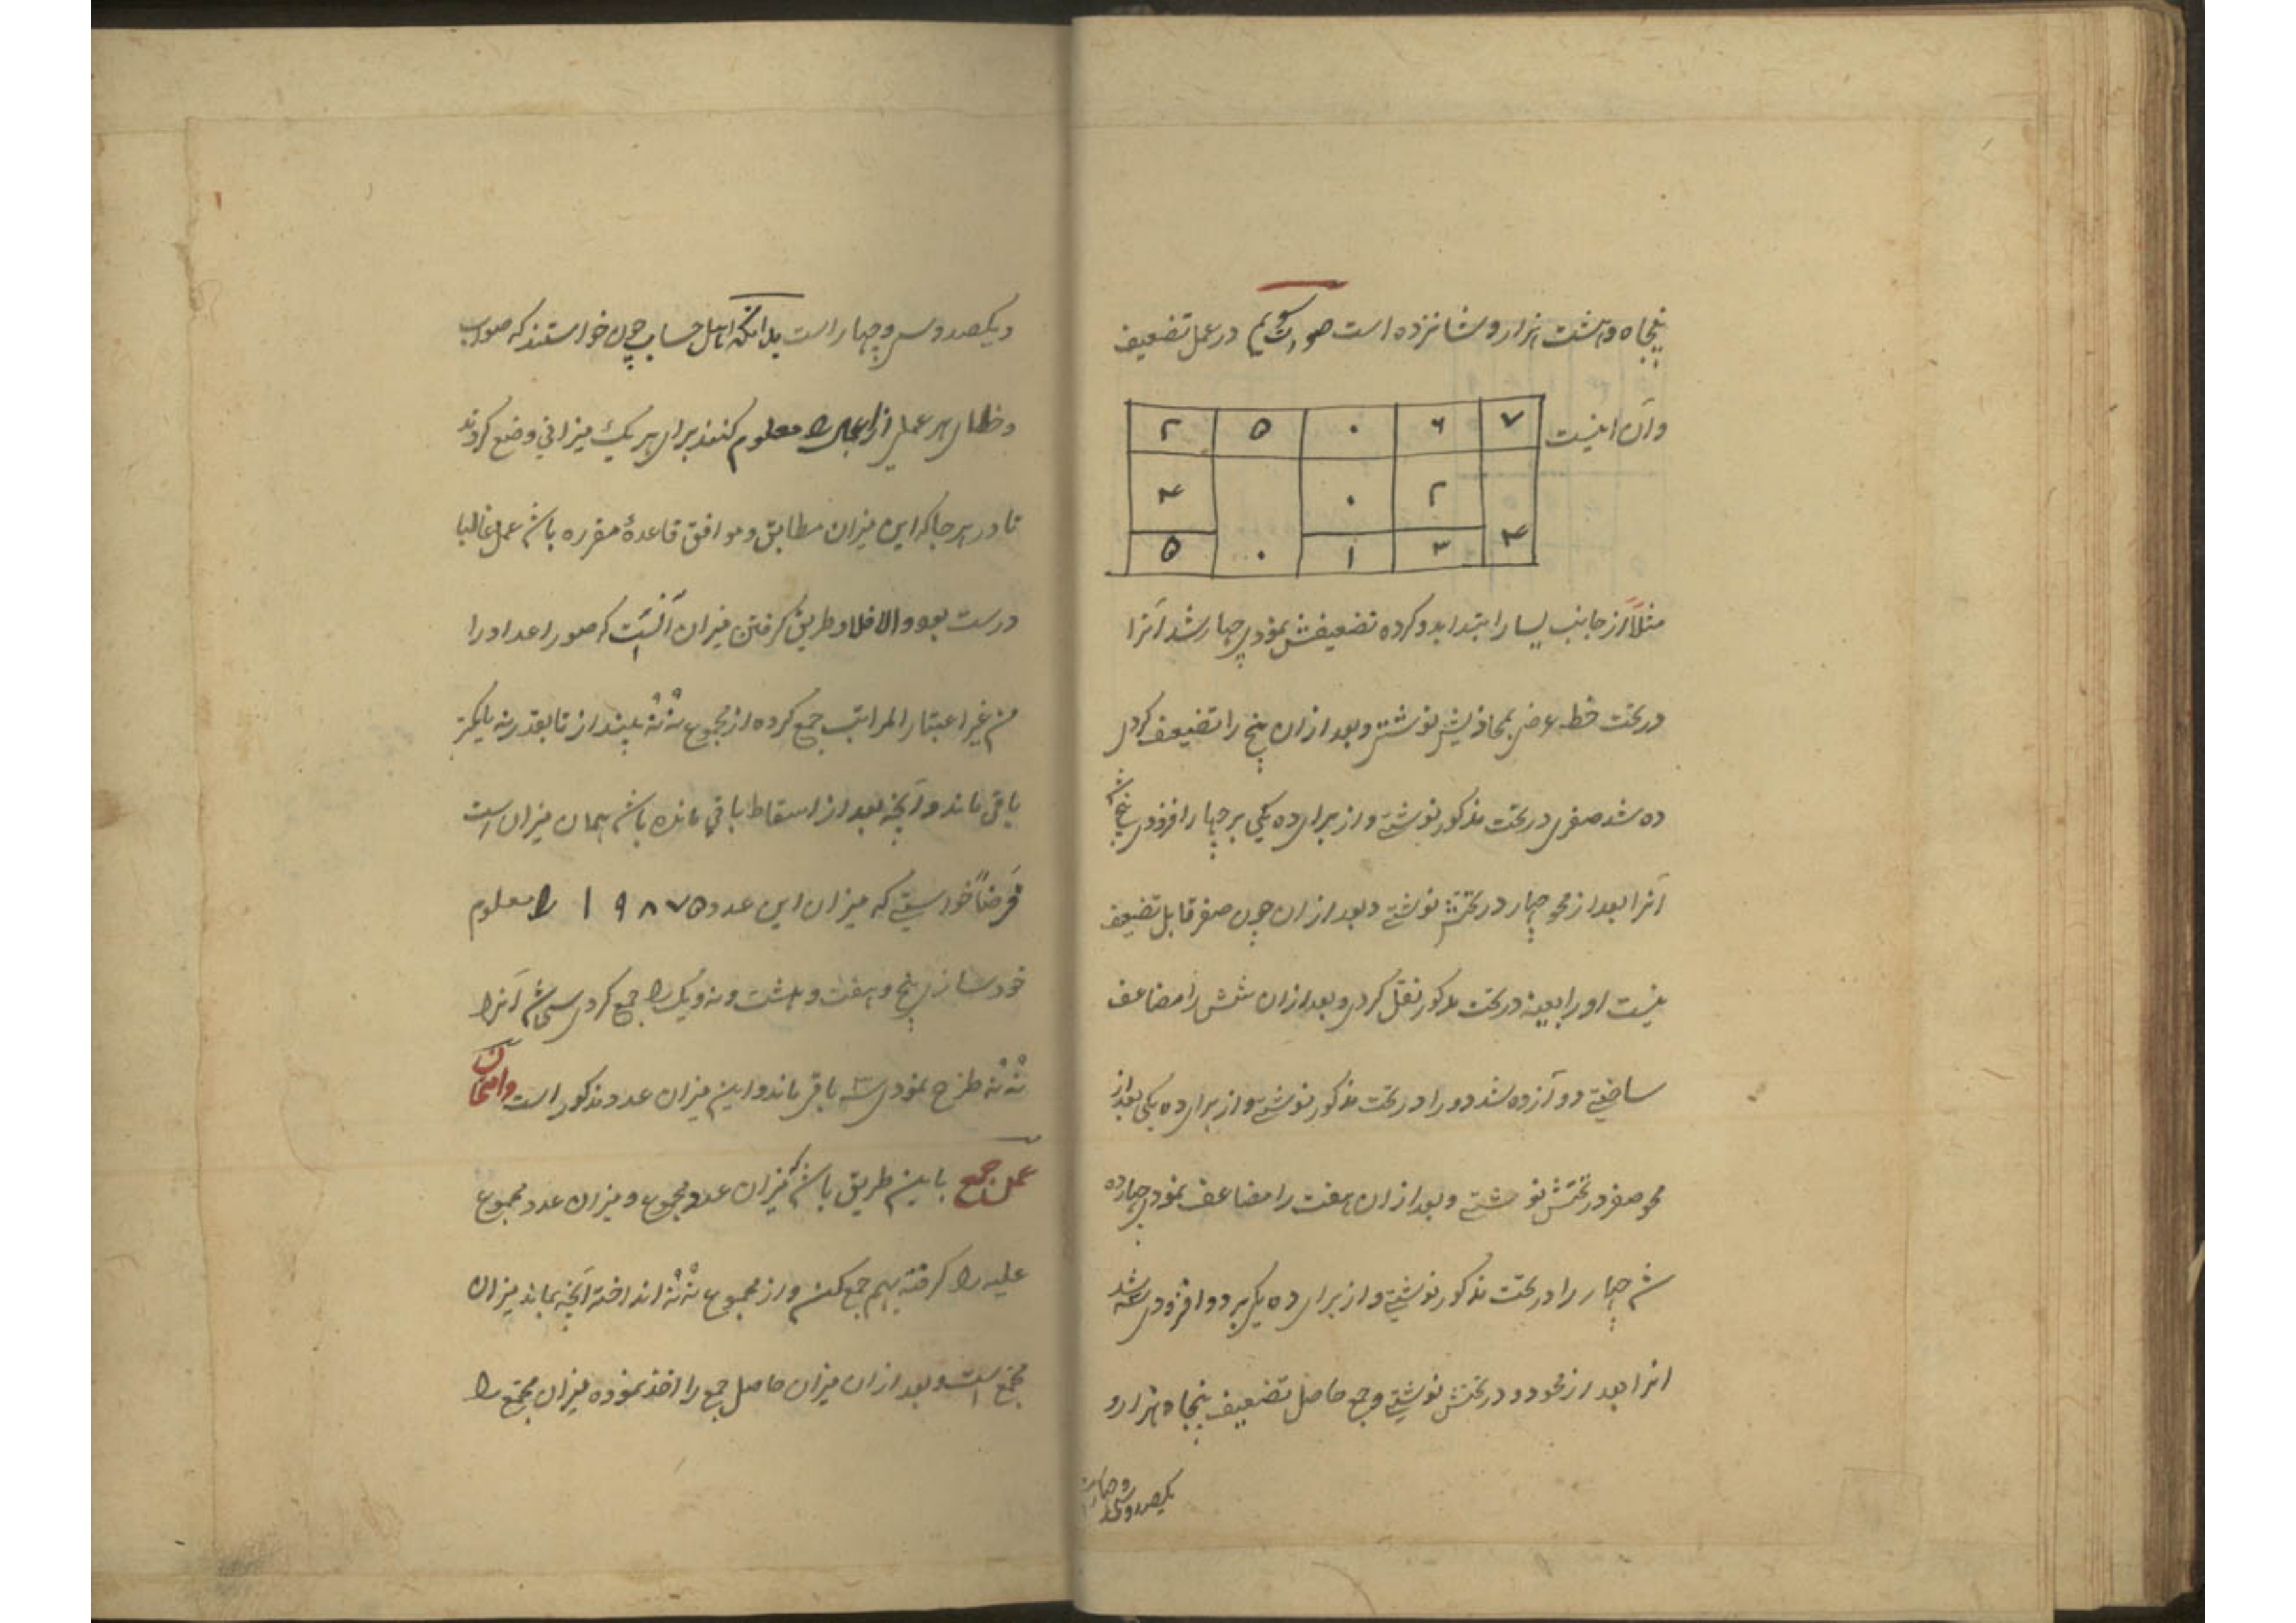 پنجاه و هشت هزار و شانزده است صورت دویم در عمل تضعیف
وآن اینست
۲ ۵ ۰ ۶ ۷
۴ ۰ ۲
۵ ۰ ۱ ۳ ۴
مثلاً از جانب یسار ابتدا بدو کرده تضعیفش نمودی چهار شد آنرا
در تحت خط عرضی بمحاذیش نوشتی و بعد ازان پنج را تضعیف کردی
ده شد صفری در تحت مذکور نوشتی و از برای ده یکی بر چهار افزودی پنج شد
آنرا بعد از محو چهار در تحتش نوشتی و بعد ازان چون صفر قابل تضعیف
نیست او را بعینه در تحت مذکور نقل کردی و بعد ازان شش را مضاعف
ساختی دوآزده شد دو را در تحت مذکور نوشتی و از برای ده یکی بعد از
محو صفر در تحتش نوشتی و بعد ازان هفت را مضاعف نمودی چهارده
شد چهار را در تحت مذکور نوشتی و از برای ده یکی بر دو افزودی سه شد
انرا بعد از محو دو در تحتش نوشتی و جمع حاصل تضعیف پنجاه هزار و
یکصد و سی و چهار است
و یکصد و سی و چهار است بدانکه اهل حساب چون خواستند که صواب
و خطای هر عملی ازاعمال را معلوم کنند برای هر یک میزانی وضع کردند
تا در هر جا که این میزان مطابق و موافق قاعدهٔ مقرره باشد عمل غالبا
درست بود والا فلا و طریق گرفتن میزان آنست که صور اعداد را
من غیر اعتبار المراتب جمع کرده از مجموع نه نه بیندازند تا بقدر نه یا کمتر
باقی ماند و آنچه بعد از اسقاط باقی مانده باشد همان میزان است
فرضاً خواستی که میزان این عدد ۱۹۸۷۵ را معلوم
خود سازی پنج و هفت و هشت و نه و یک را جمع کردی سی شد آنرا
نه نه طرح نمودی سه باقی ماند و این میزان عدد مذکور است وامتحان
عمل جمع باین طریق باشد که میزان عدد مجموع و میزان عدد مجموع
علیه را گرفته بهم جمع کن و از مجموع نه نه انداخته آنچه بماند میزان
مجتمع است و بعد ازان میزان حاصل جمع را اخذ نموده میزان مجتمع را